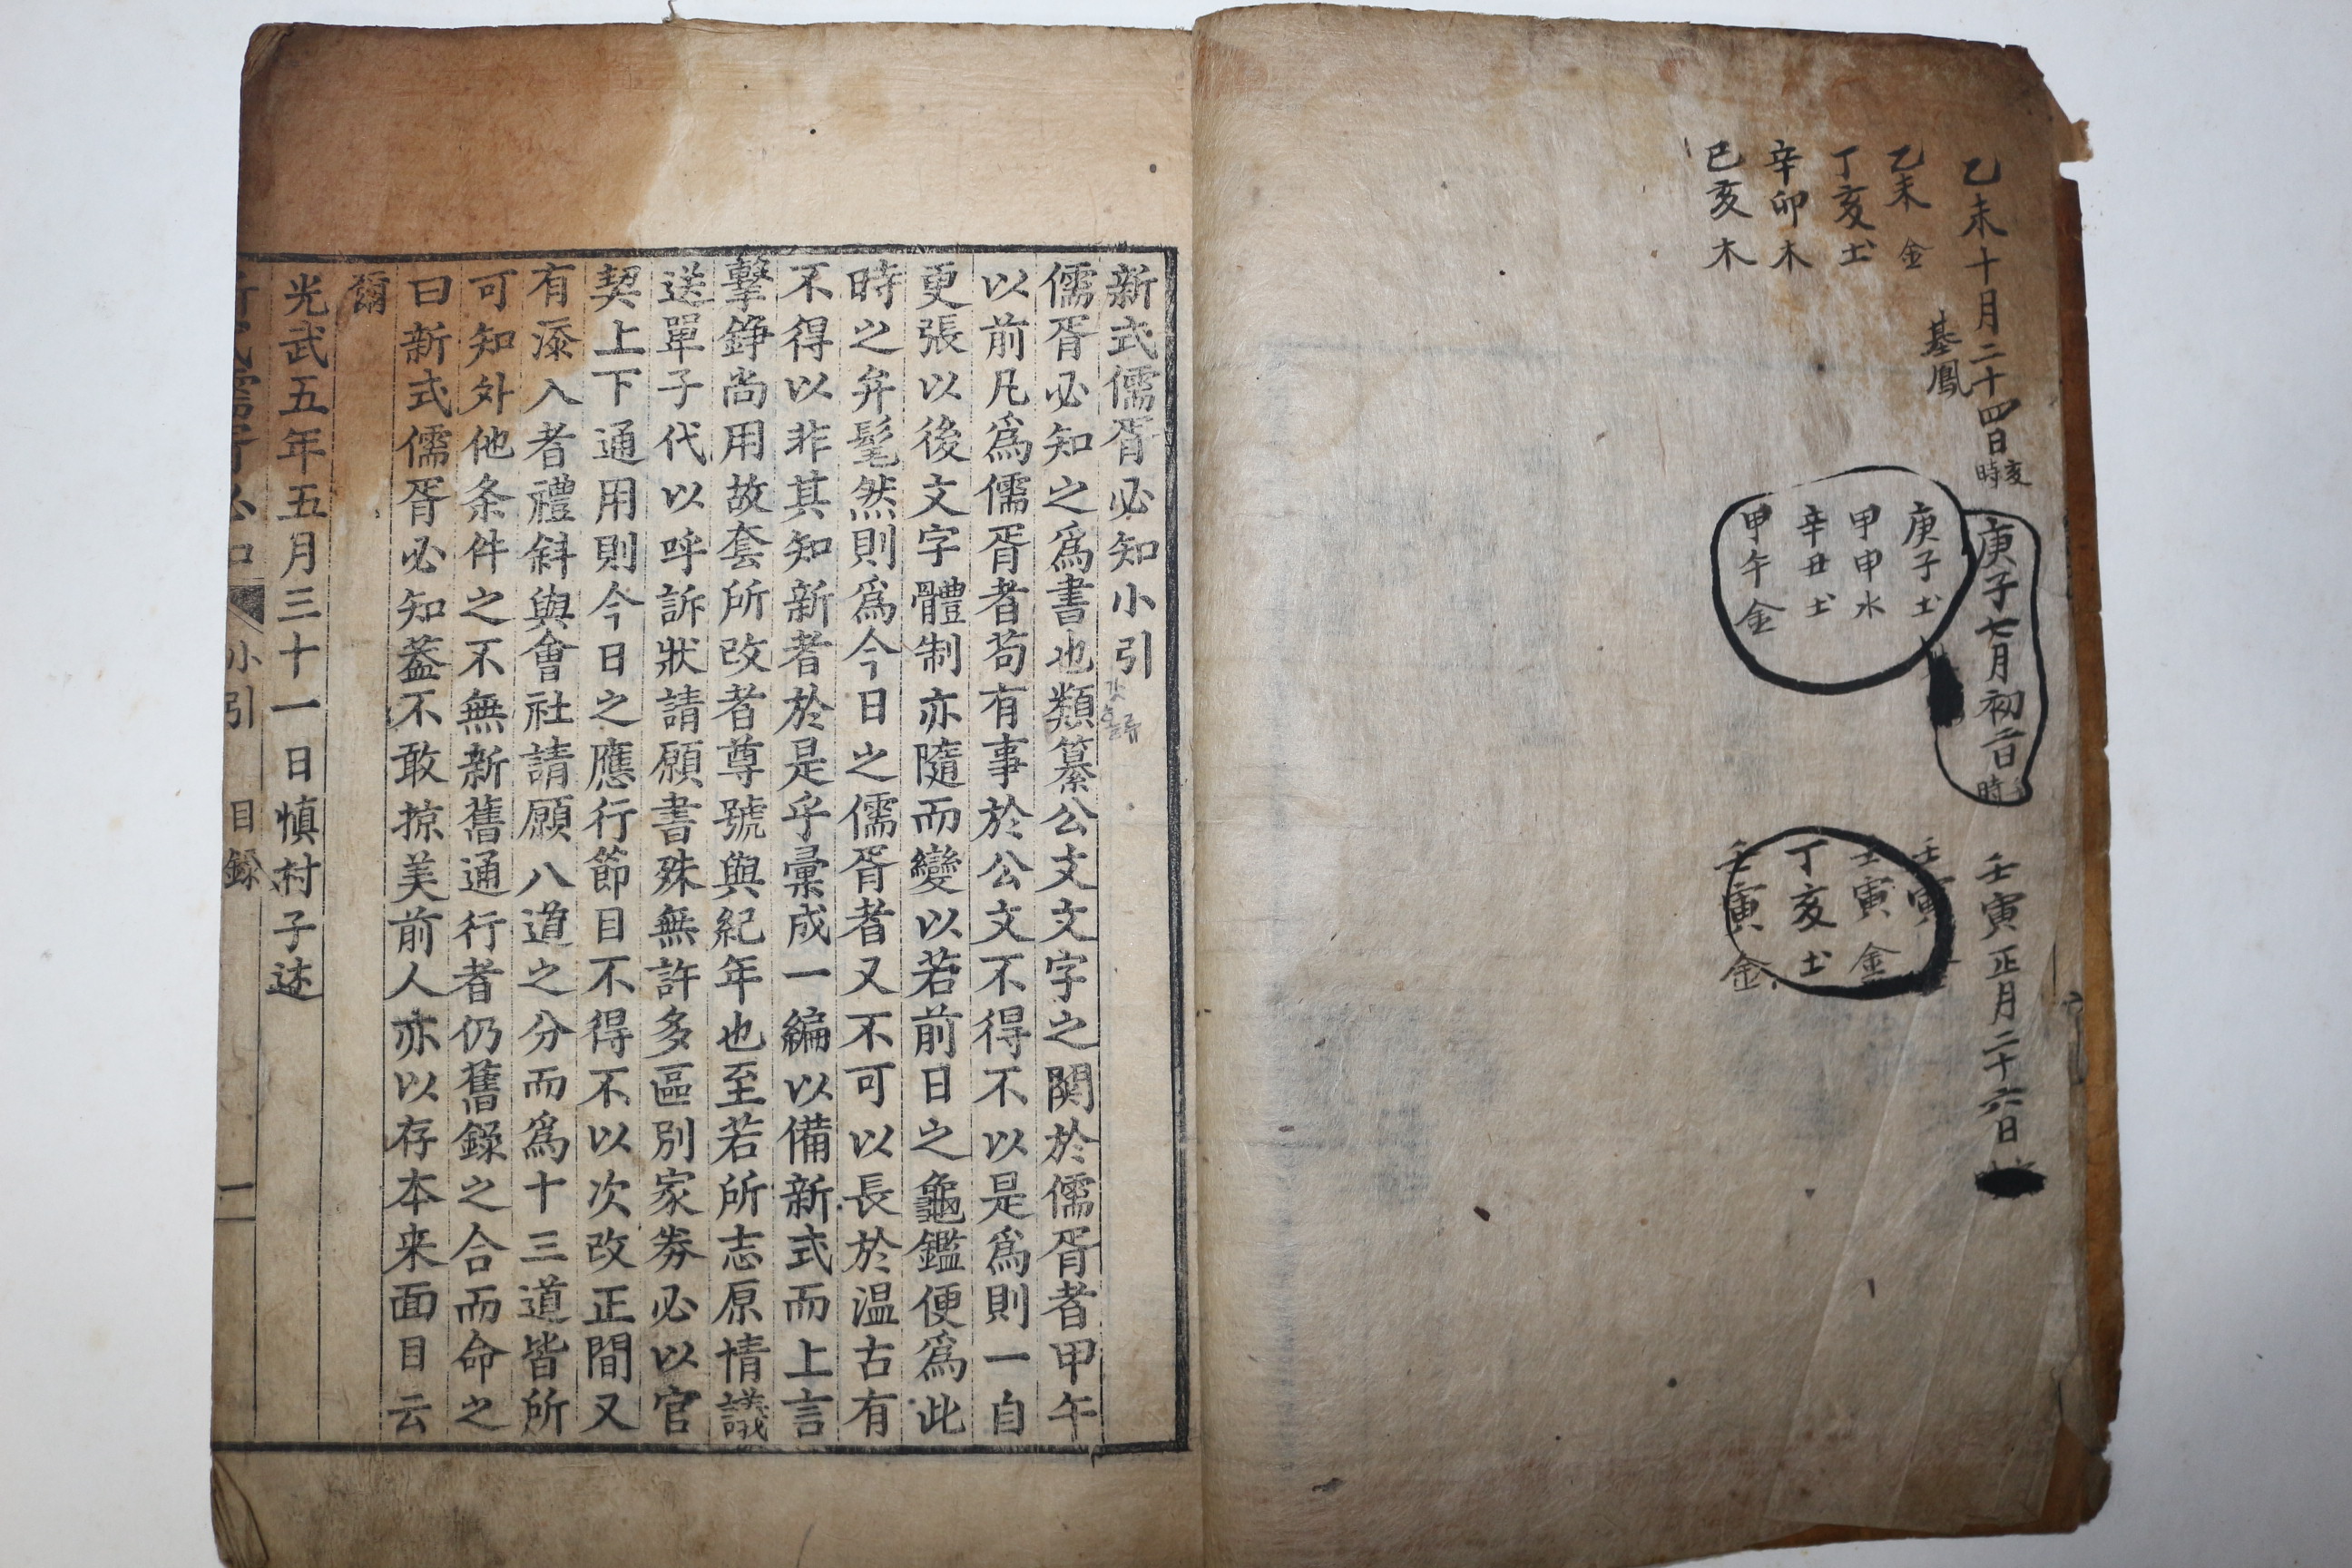 乙未十月二十四日亥時
基鳳
乙未 金
丁亥 土
辛卯 木
己亥 木
庚子七月初二日 時
庚子 土
甲申 水
辛丑 土
甲午 金
壬寅正月二十六日
壬寅
壬寅 金
丁亥 土
壬寅 金
新式儒胥必知小引
儒胥必知之爲書也類纂公文文字之関於儒胥者甲午
以前凡爲儒胥者苟有事於公文不得不以是爲則一自
更張以後文字體制亦隨而變以若前日之龜鑑便爲此
時之弁髦然則爲今日之儒胥者又不可以長於温古有
不得以非其知新者於是乎彙成一編以備新式而上言
擊錚尚用故套所改者尊號與紀年也至若所志原情議
送單子代以呼訴狀請願書殊無許多區別家券必以官
契上下通用則今日之應行節目不得不以次改正間又
有添入者禮斜與會社請願八道之分而爲十三道皆所
可知外他条件之不無新舊通行者仍舊錄之合而命之
曰新式儒胥必知葢不敢掠美前人亦以存本来面目云
爾
光武五年五月三十一日慎村子述
小引 目錄 一